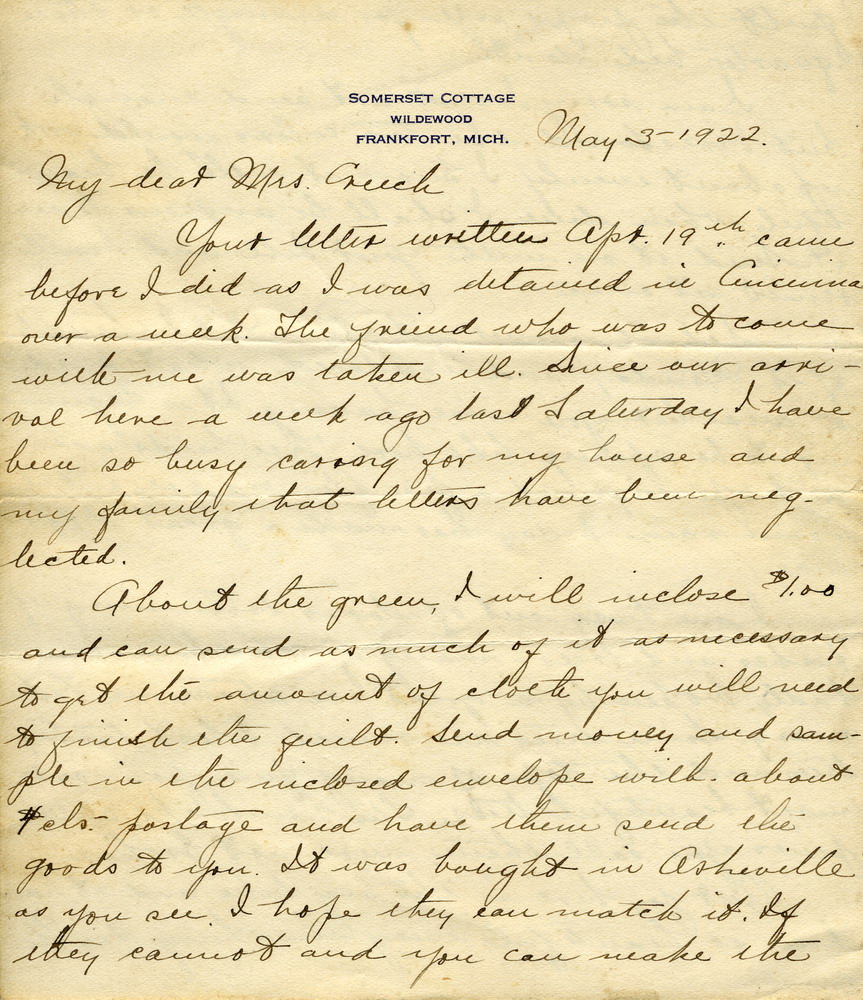 SOMERSET COTTAGE
WILDEWOOD
FRANKFORT, MICH.
May 3-1922.
My dear Mrs. Creech
Your letter written Apr. 19th came
before I did as I was detained in Cincinna
over a week. The friend who was to come
with me was taken ill. Since our arri-
val here a week ago last Saturday I have
been so busy caring for my house and
my family that letters have been neg-
lected.
About the green, I will inclose $1.00
and can send as much of it as necessary
to get the amount of cloth you will need
to finish the quilt. Send money and sam-
ple in the inclosed envelope with about
cts. postage and have them send the
goods to you. It was bought in Asheville
as you see. I hope they can match it. If
they cannot and you can make the